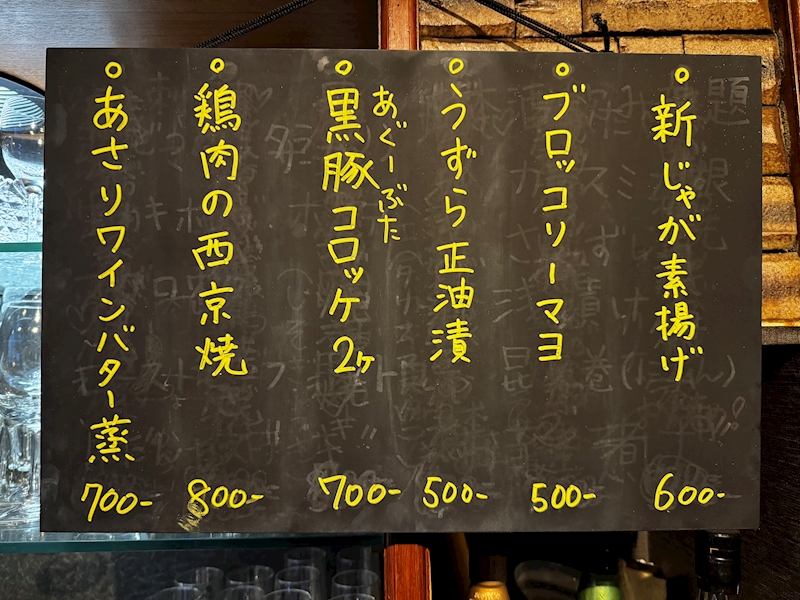 新じゃが素揚げ
600-
ブロッコリーマヨ
500-
うずら正油漬
500-
あぐーぶた
黒豚コロッケ2ヶ
700-
鶏肉の西京焼
800-
あさりワインバター蒸
700-